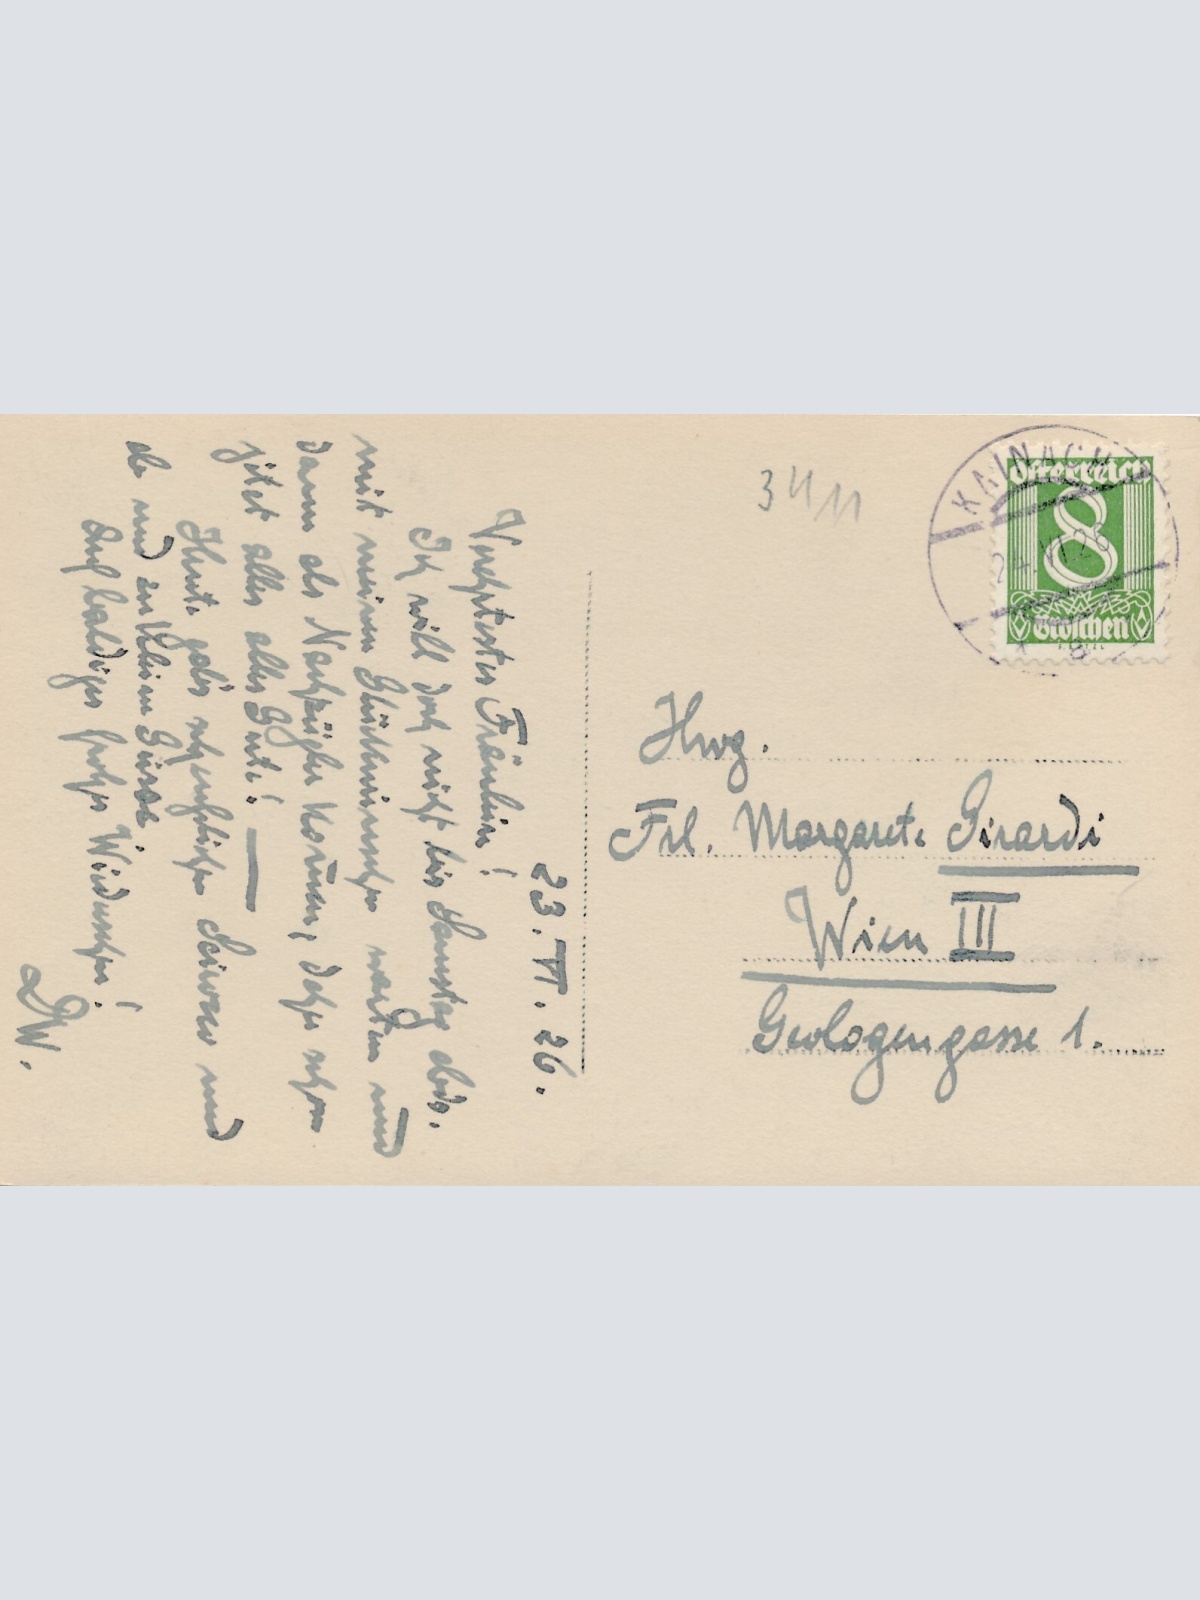 23.VI.26.
Verehrtestes Fräulein!
Ich will doch nicht bis Samstag abds.
mit meinen Glückwünschen warten und
dann als Nachzügler kommen, daher schon
jetzt alles alles Gute! —
Heute gab's Scirocco und
ab und zu kleine Güsse.
Auf baldiges frohes Wiedersehen!
DW.
3411
KAINACH
24.VI.26
Österreich
8
Groschen
Hwg.
Frl. Margarete Girardi
Wien III
Geologengasse 1.